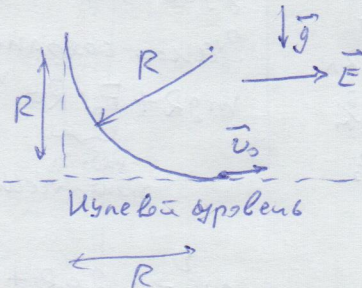 g
R
R
E
v₀
Нулевой уровень
R